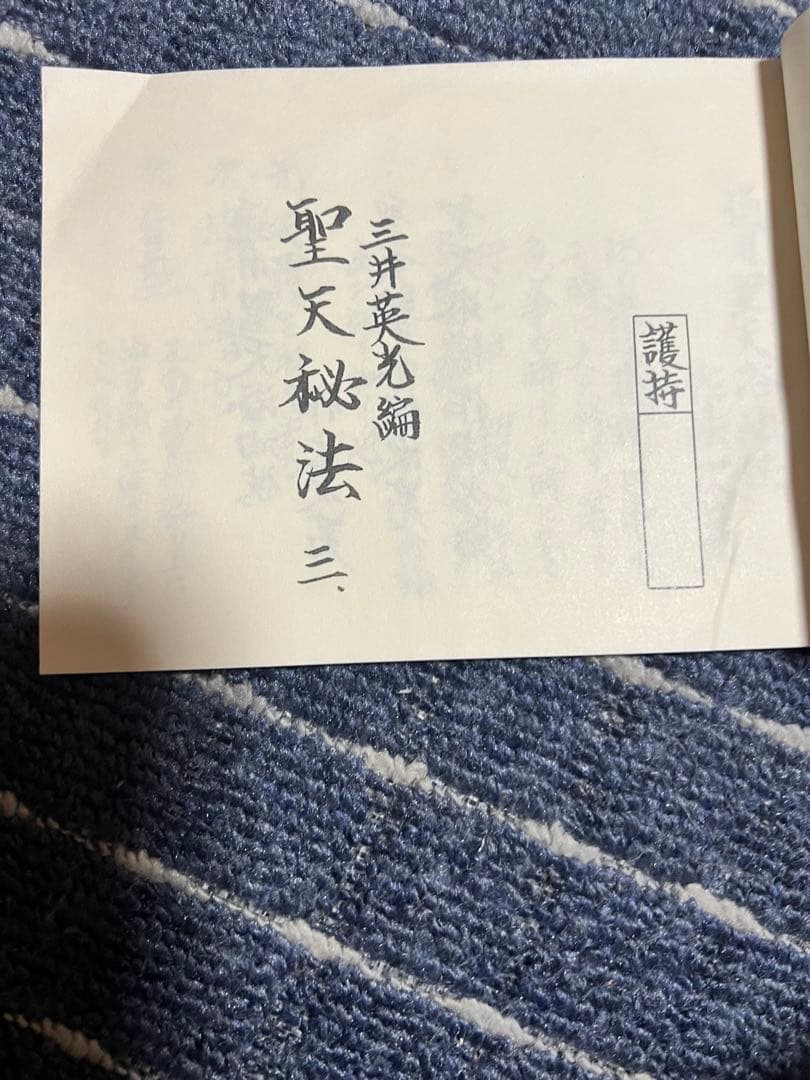 護持
三井英光編
聖天秘法 三、